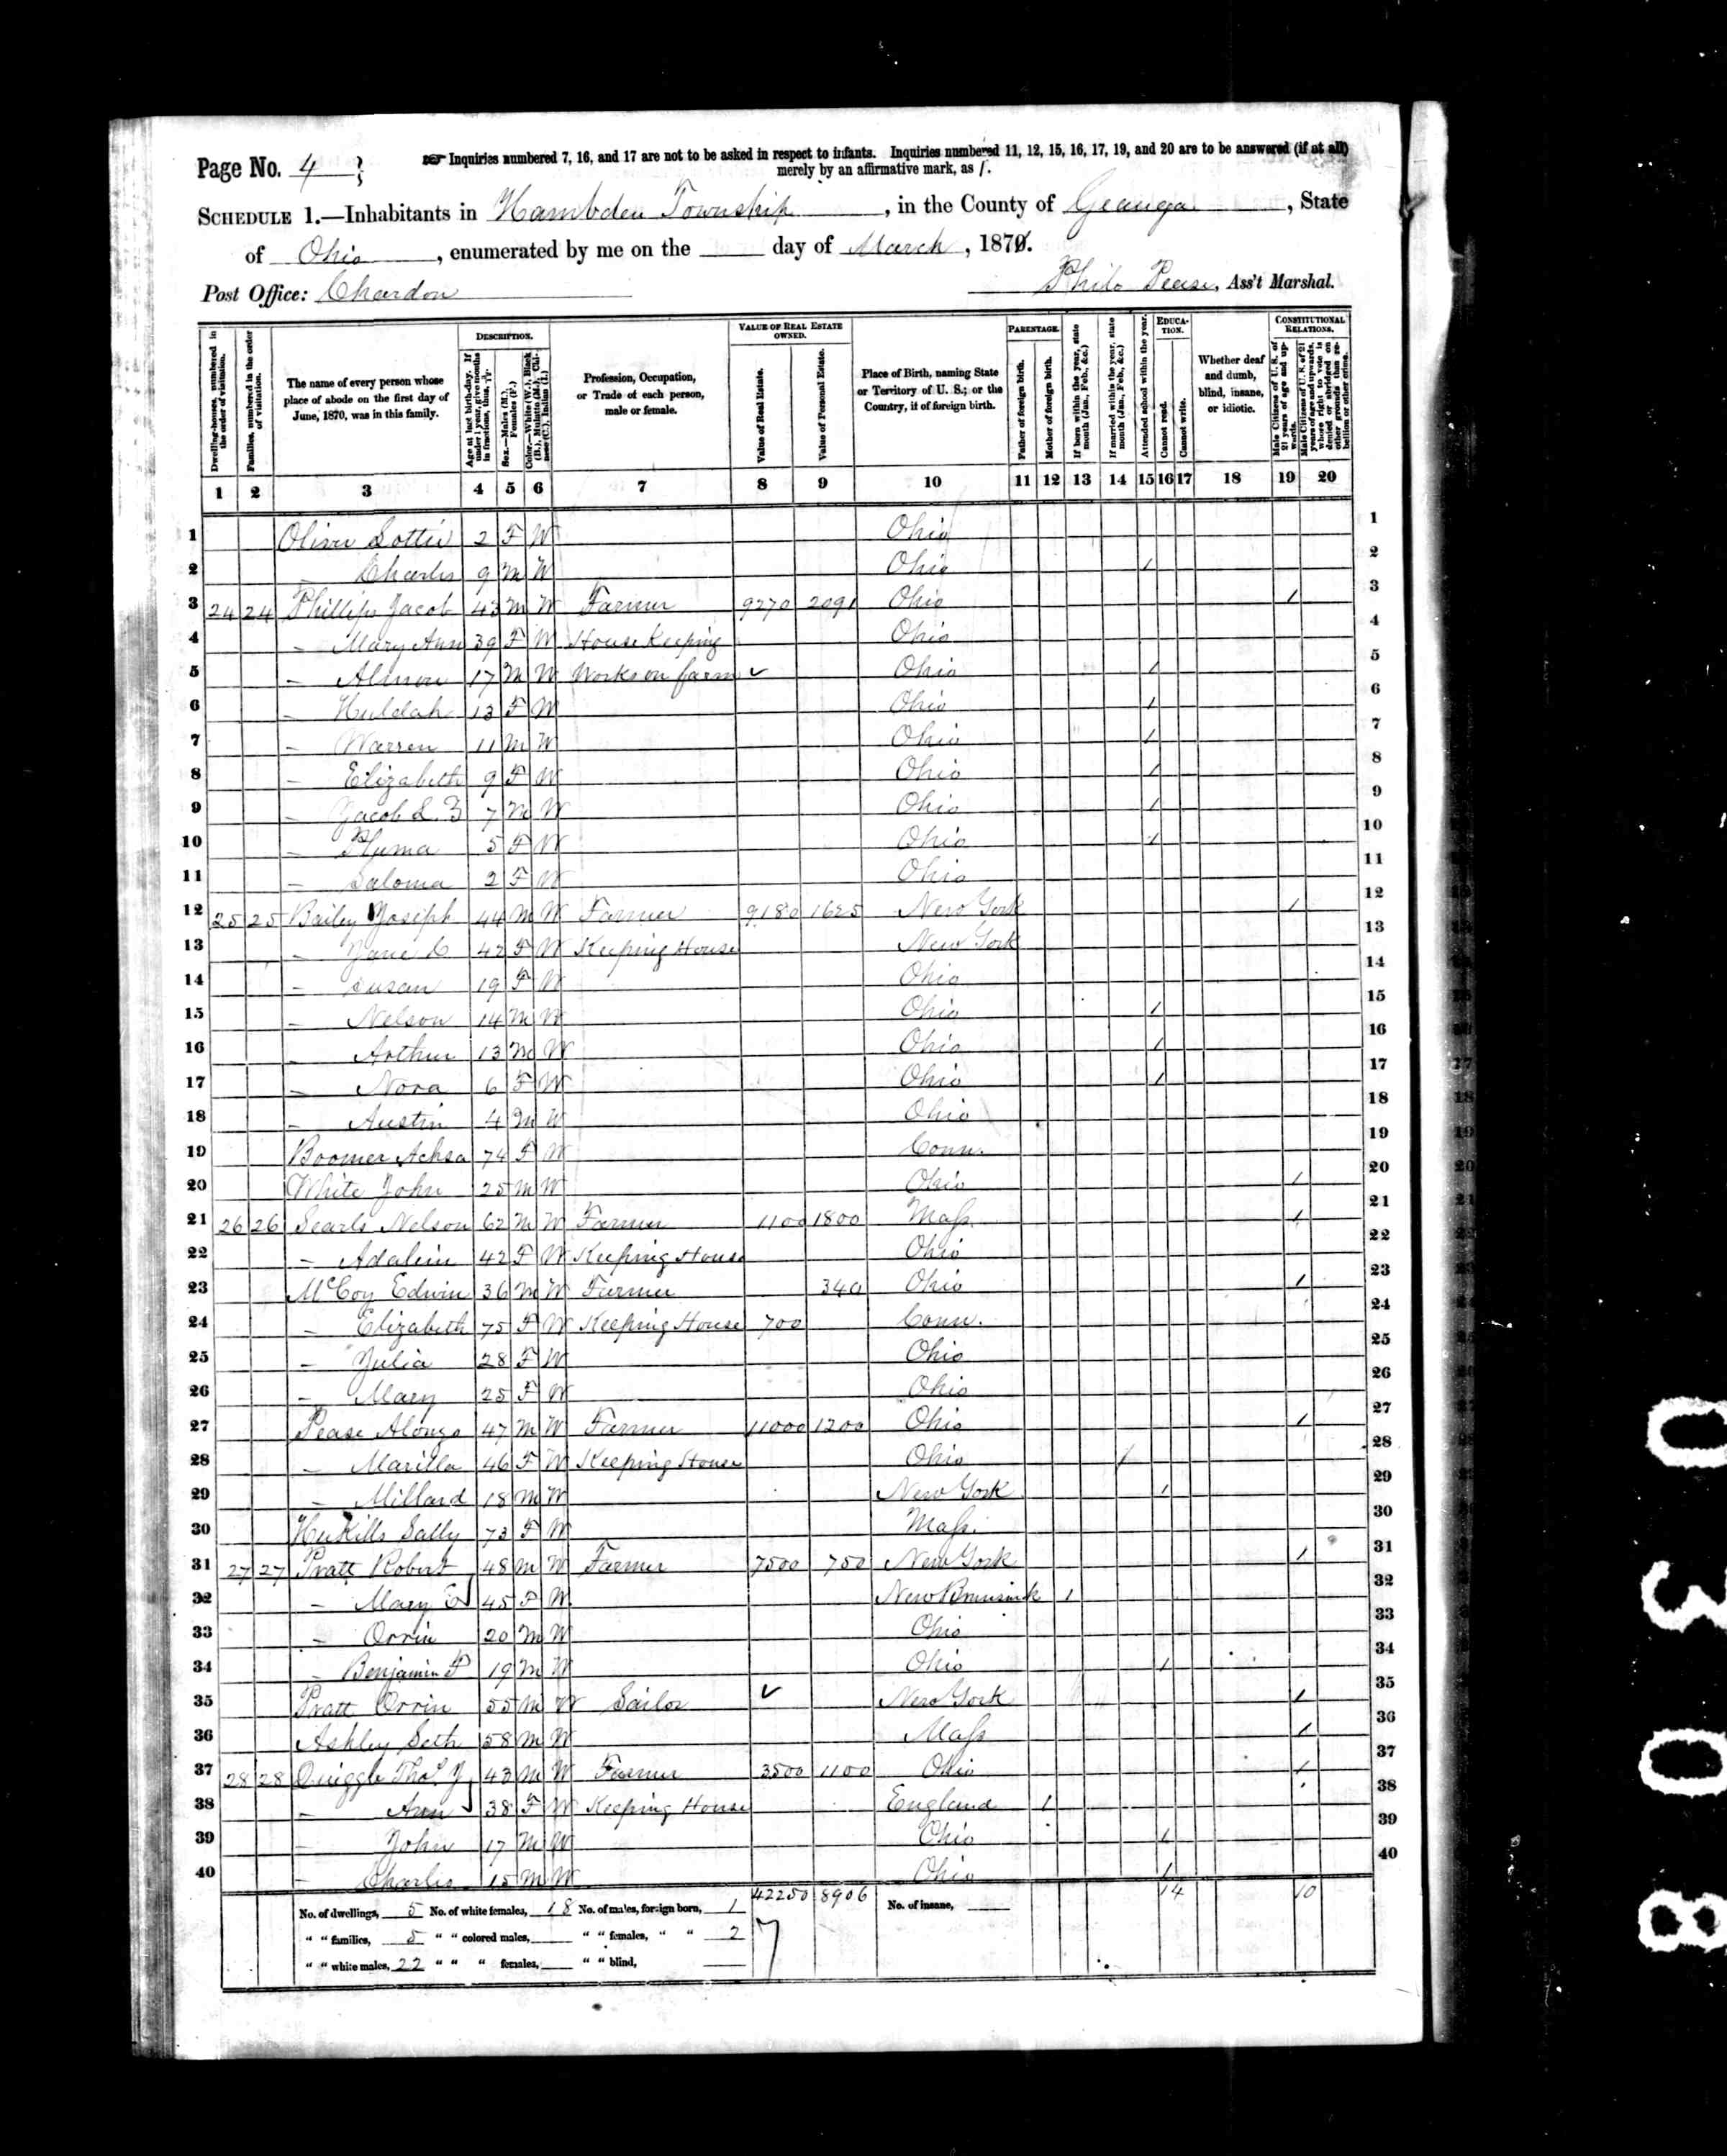 Page No. 4
Inquiries numbered 7, 16, and 17 are not to be asked in respect to infants. Inquiries numbered 11, 12, 15, 16, 17, 19, and 20 are to be answered (if at all)
merely by an affirmative mark, as /.
SCHEDULE 1.—Inhabitants in Hambden Township, in the County of Geauga, State
of Ohio, enumerated by me on the day of March, 1870.
Post Office: Chardon
Philo Pease, Ass't Marshal.
Dwelling-houses, numbered in the order of visitation.
Families, numbered in the order of visitation.
The name of every person whose place of abode on the first day of June, 1870, was in this family.
DESCRIPTION.
Age at last birth-day. If under 1 year, give months in fractions, thus, 3/12
Sex.—Males (M.), Females (F.)
Color.—White (W.), Black (B.), Mulatto (M.), Chinese (C.), Indian (I.)
Profession, Occupation, or Trade of each person, male or female.
VALUE OF REAL ESTATE OWNED.
Value of Real Estate.
Value of Personal Estate.
Place of Birth, naming State or Territory of U. S.; or the Country, if of foreign birth.
PARENTAGE.
Father of foreign birth.
Mother of foreign birth.
If born within the year, state month (Jan., Feb., &c.)
If married within the year, state month (Jan., Feb., &c.)
Attended school within the year.
EDUCATION.
Cannot read.
Cannot write.
Whether deaf and dumb, blind, insane, or idiotic.
CONSTITUTIONAL RELATIONS.
Male Citizens of U. S. of 21 years of age and upwards.
Male Citizens of U. S. of 21 years of age and upwards, whose right to vote is denied or abridged on other grounds than rebellion or other crime.
1 2 3 4 5 6 7 8 9 10 11 12 13 14 15 16 17 18 19 20
1 Oliver Lottie 2 F W Ohio 1
2 – Charles 9 M W Ohio / 2
3 24 24 Phillips Jacob 43 M W Farmer 9270 2091 Ohio / 3
4 – Mary Ann 39 F W House Keeping Ohio 4
5 – Almon 17 M W Works on farm ✓ Ohio / 5
6 – Huldah 13 F W Ohio / 6
7 – Warren 11 M W Ohio / 7
8 – Elizabeth 9 F W Ohio / 8
9 – Jacob L. 7 M W Ohio / 9
10 – 5 F W Ohio / 10
11 – Saloma 2 F W Ohio 11
12 25 25 Bailey Joseph 44 M W Farmer 9180 1625 New York / 12
13 – Jane C 42 F W Keeping House New York 13
14 – Susan 19 F W Ohio 14
15 – Nelson 14 M W Ohio / 15
16 – Arthur 13 M W Ohio / 16
17 – Nora 6 F W Ohio / 17
18 – Austin 4 M W Ohio 18
19 Boomer Achsa 74 F W Conn. 19
20 White John 25 M W Ohio / 20
21 26 26 Searls Nelson 62 M W Farmer 1100 1800 Mass. / 21
22 – Adalein 42 F W Keeping House Ohio 22
23 McCoy Edwin 36 M W Farmer 340 Ohio / 23
24 – Elizabeth 75 F W Keeping House 700 Conn. 24
25 – Julia 28 F W Ohio 25
26 – Mary 25 F W Ohio 26
27 Pease Alonzo 47 M W Farmer 11000 1200 Ohio / 27
28 – Marilla 46 F W Keeping House Ohio / 28
29 – Millard 18 M W New York / 29
30 Sally 73 F W Mass. 30
31 27 27 Pratt Robert 48 M W Farmer 7500 750 New York / 31
32 – Mary E 45 F W New Brunswick / 32
33 – Orrin 20 M W Ohio 33
34 – Benjamin F 19 M W Ohio / 34
35 Pratt Orrin 55 M W Sailor ✓ New York / 35
36 Ashley Seth 58 M W Mass / 36
37 28 28 Quiggle Thos. J. 43 M W Farmer 3500 1100 Ohio / 37
38 – Ann 38 F W Keeping House England / 38
39 – John 17 M W Ohio / 39
40 – Charles 15 M W Ohio / 40
42250 8906 14 10
No. of dwellings, 5 No. of white females, 18 No. of males, foreign born, 1 No. of insane,
" " families, 5 " " colored males, " " females, " " 2
" " white males, 22 " " " females, " " blind,
7
8030